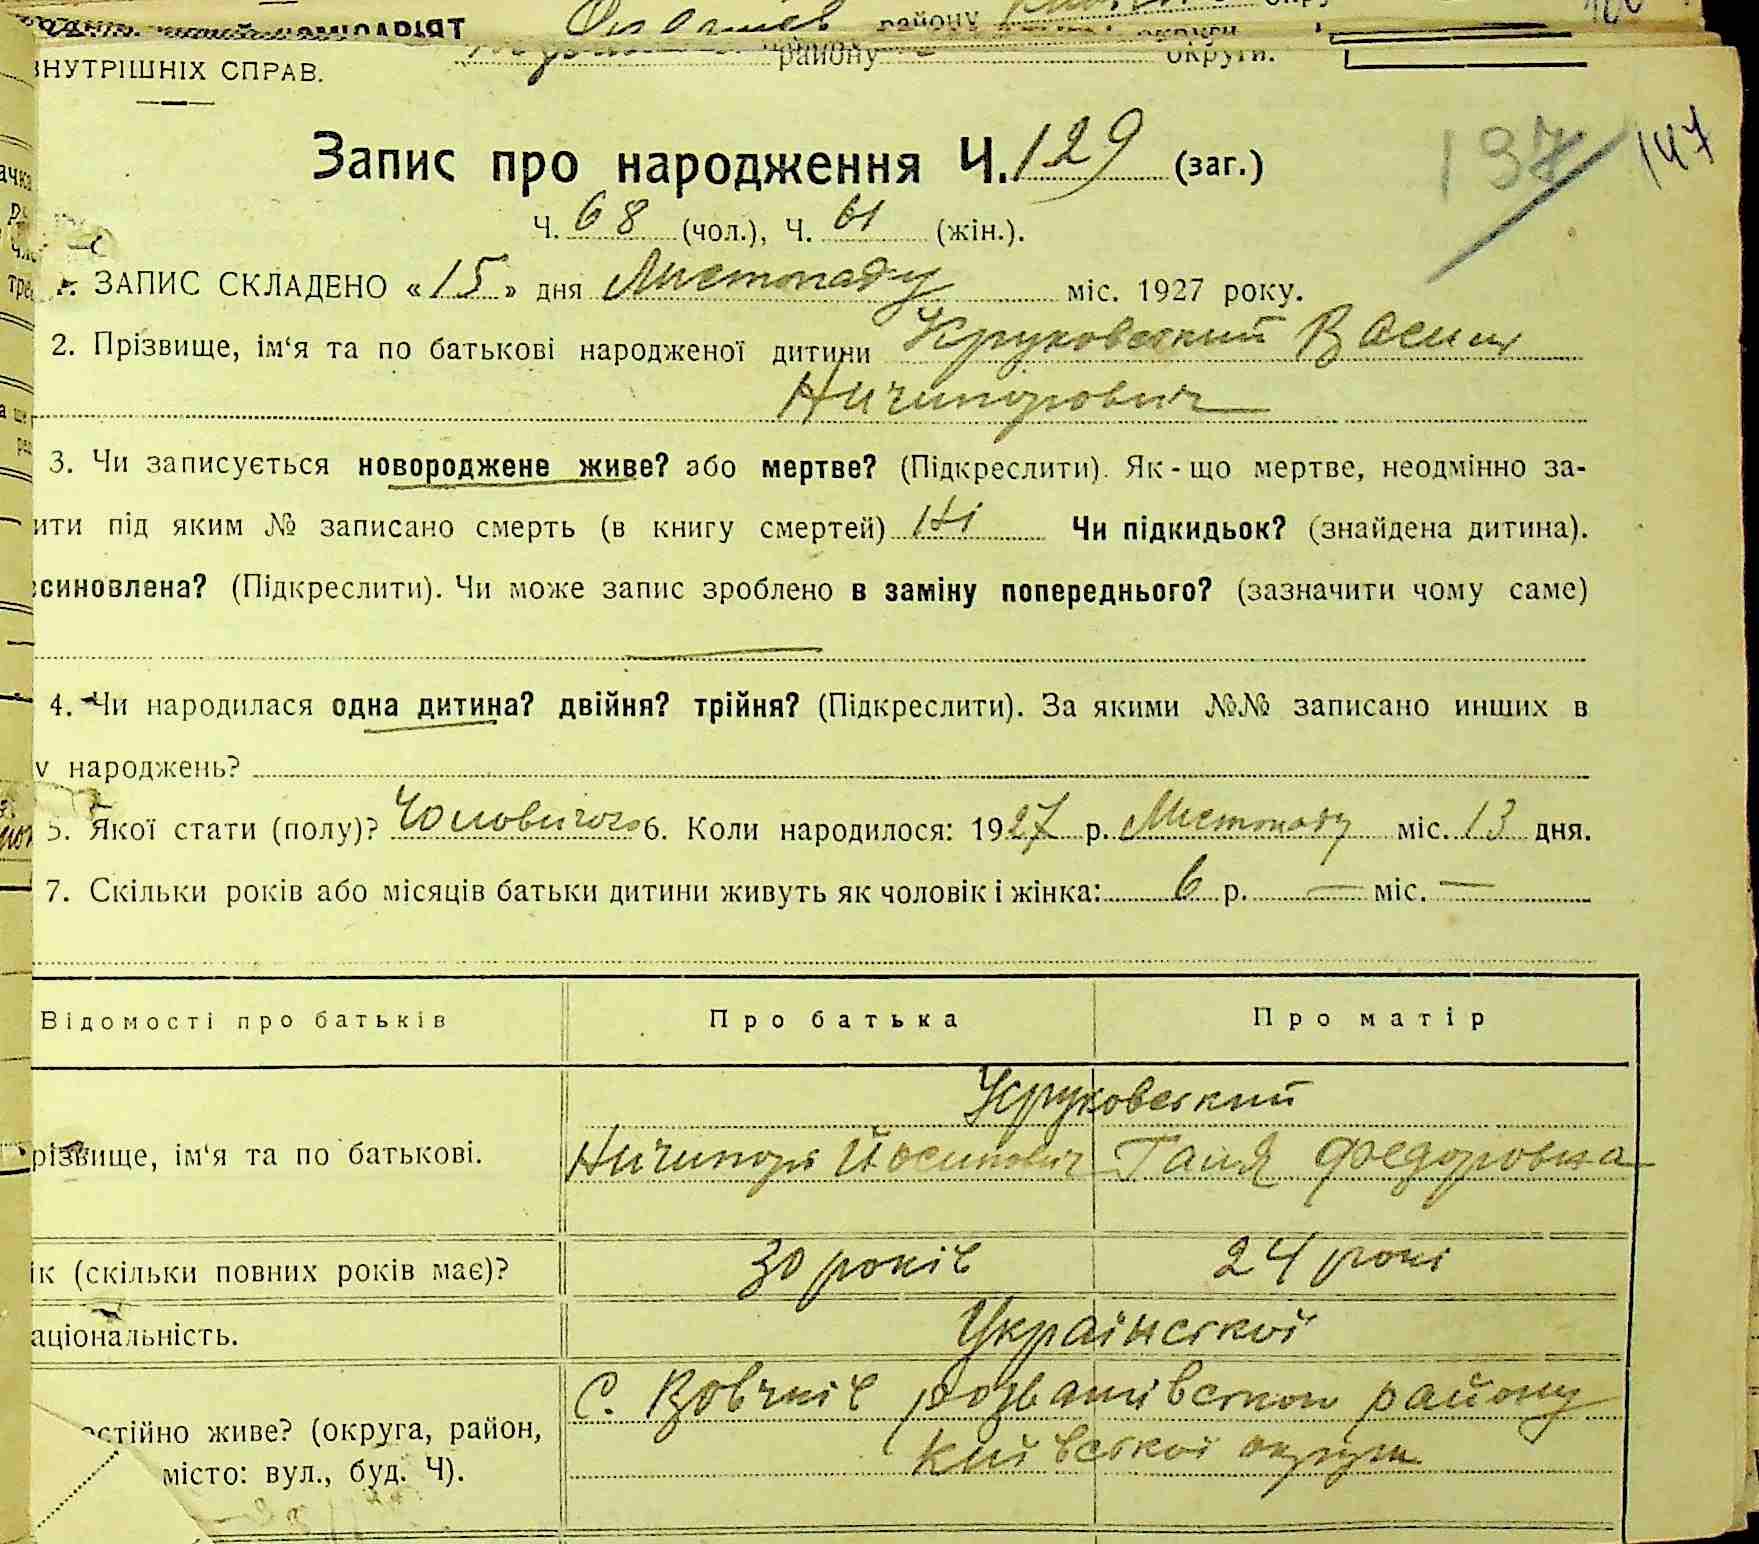 району округи.
ВНУТРІШНІХ СПРАВ. району округи.
137 147
Запис про народження Ч. 129 (заг.)
Ч. 68 (чол.), Ч. 61 (жін.).
ЗАПИС СКЛАДЕНО «15» дня Листопаду міс. 1927 року.
2. Прізвище, ім‘я та по батькові народженої дитини Круковський Василь
Ничипорович
3. Чи записується новороджене живе? або мертве? (Підкреслити). Як-що мертве, неодмінно за-
ити під яким № записано смерть (в книгу смертей) Ні Чи підкидьок? (знайдена дитина).
синовлена? (Підкреслити). Чи може запис зроблено в заміну попереднього? (зазначити чому саме)
4. Чи народилася одна дитина? двійня? трійня? (Підкреслити). За якими №№ записано инших в
у народжень?
5. Якої стати (полу)? Чоловічого 6. Коли народилося: 1927 р. Листопаду міс. 13 дня.
7. Скільки років або місяців батьки дитини живуть як чоловік і жінка: 6 р. — міс. —
Відомості про батьків Про батька Про матір
Круковский
різвище, ім‘я та по батькові. Ничипор Йосипович Ганя Федоровна
ік (скільки повних років має)? 30 років 24 рокі
аціональність. Українскої
С. Вовчків розважівського району
остійно живе? (округа, район, Київської округи
місто: вул., буд. Ч).